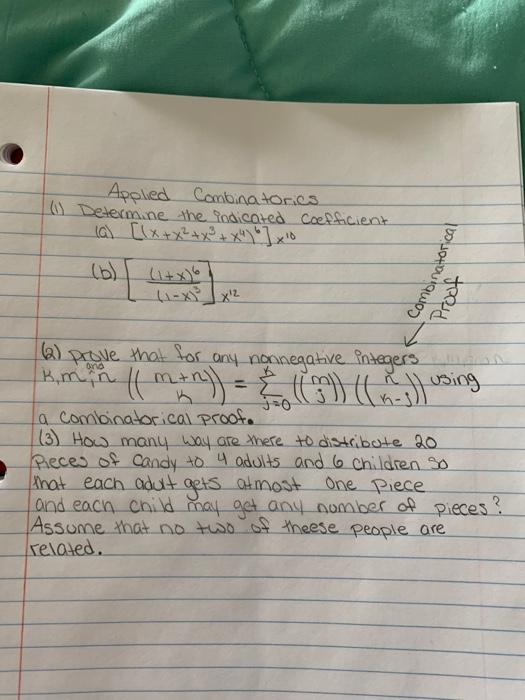 Applied Combinatorics
(1) Determine the indicated coefficient
(a) [(x+x²+x³+x⁴)⁶]x¹⁰
(b) [(1+x)⁶/(1-x)³]x¹²
Combinatorical Proof
(2) prove that for any nonnegative integers
k, m, and n ((m+n k)) = Σ k j=0 ((m j)) ((n k-j)) using
a combinatorical proof.
(3) How many way are there to distribute 20
pieces of Candy to 4 adults and 6 children so
that each adult gets atmost one piece
and each child may get any nomber of pieces?
Assume that no two of theese people are
related.